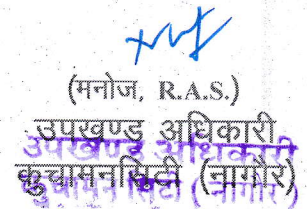 (मनोज, R.A.S.)
उपखण्ड अधिकारी
कुचामनसिटी (नागौर)
उपखण्ड अधिकारी
कुचामन सिटी (नागौर)